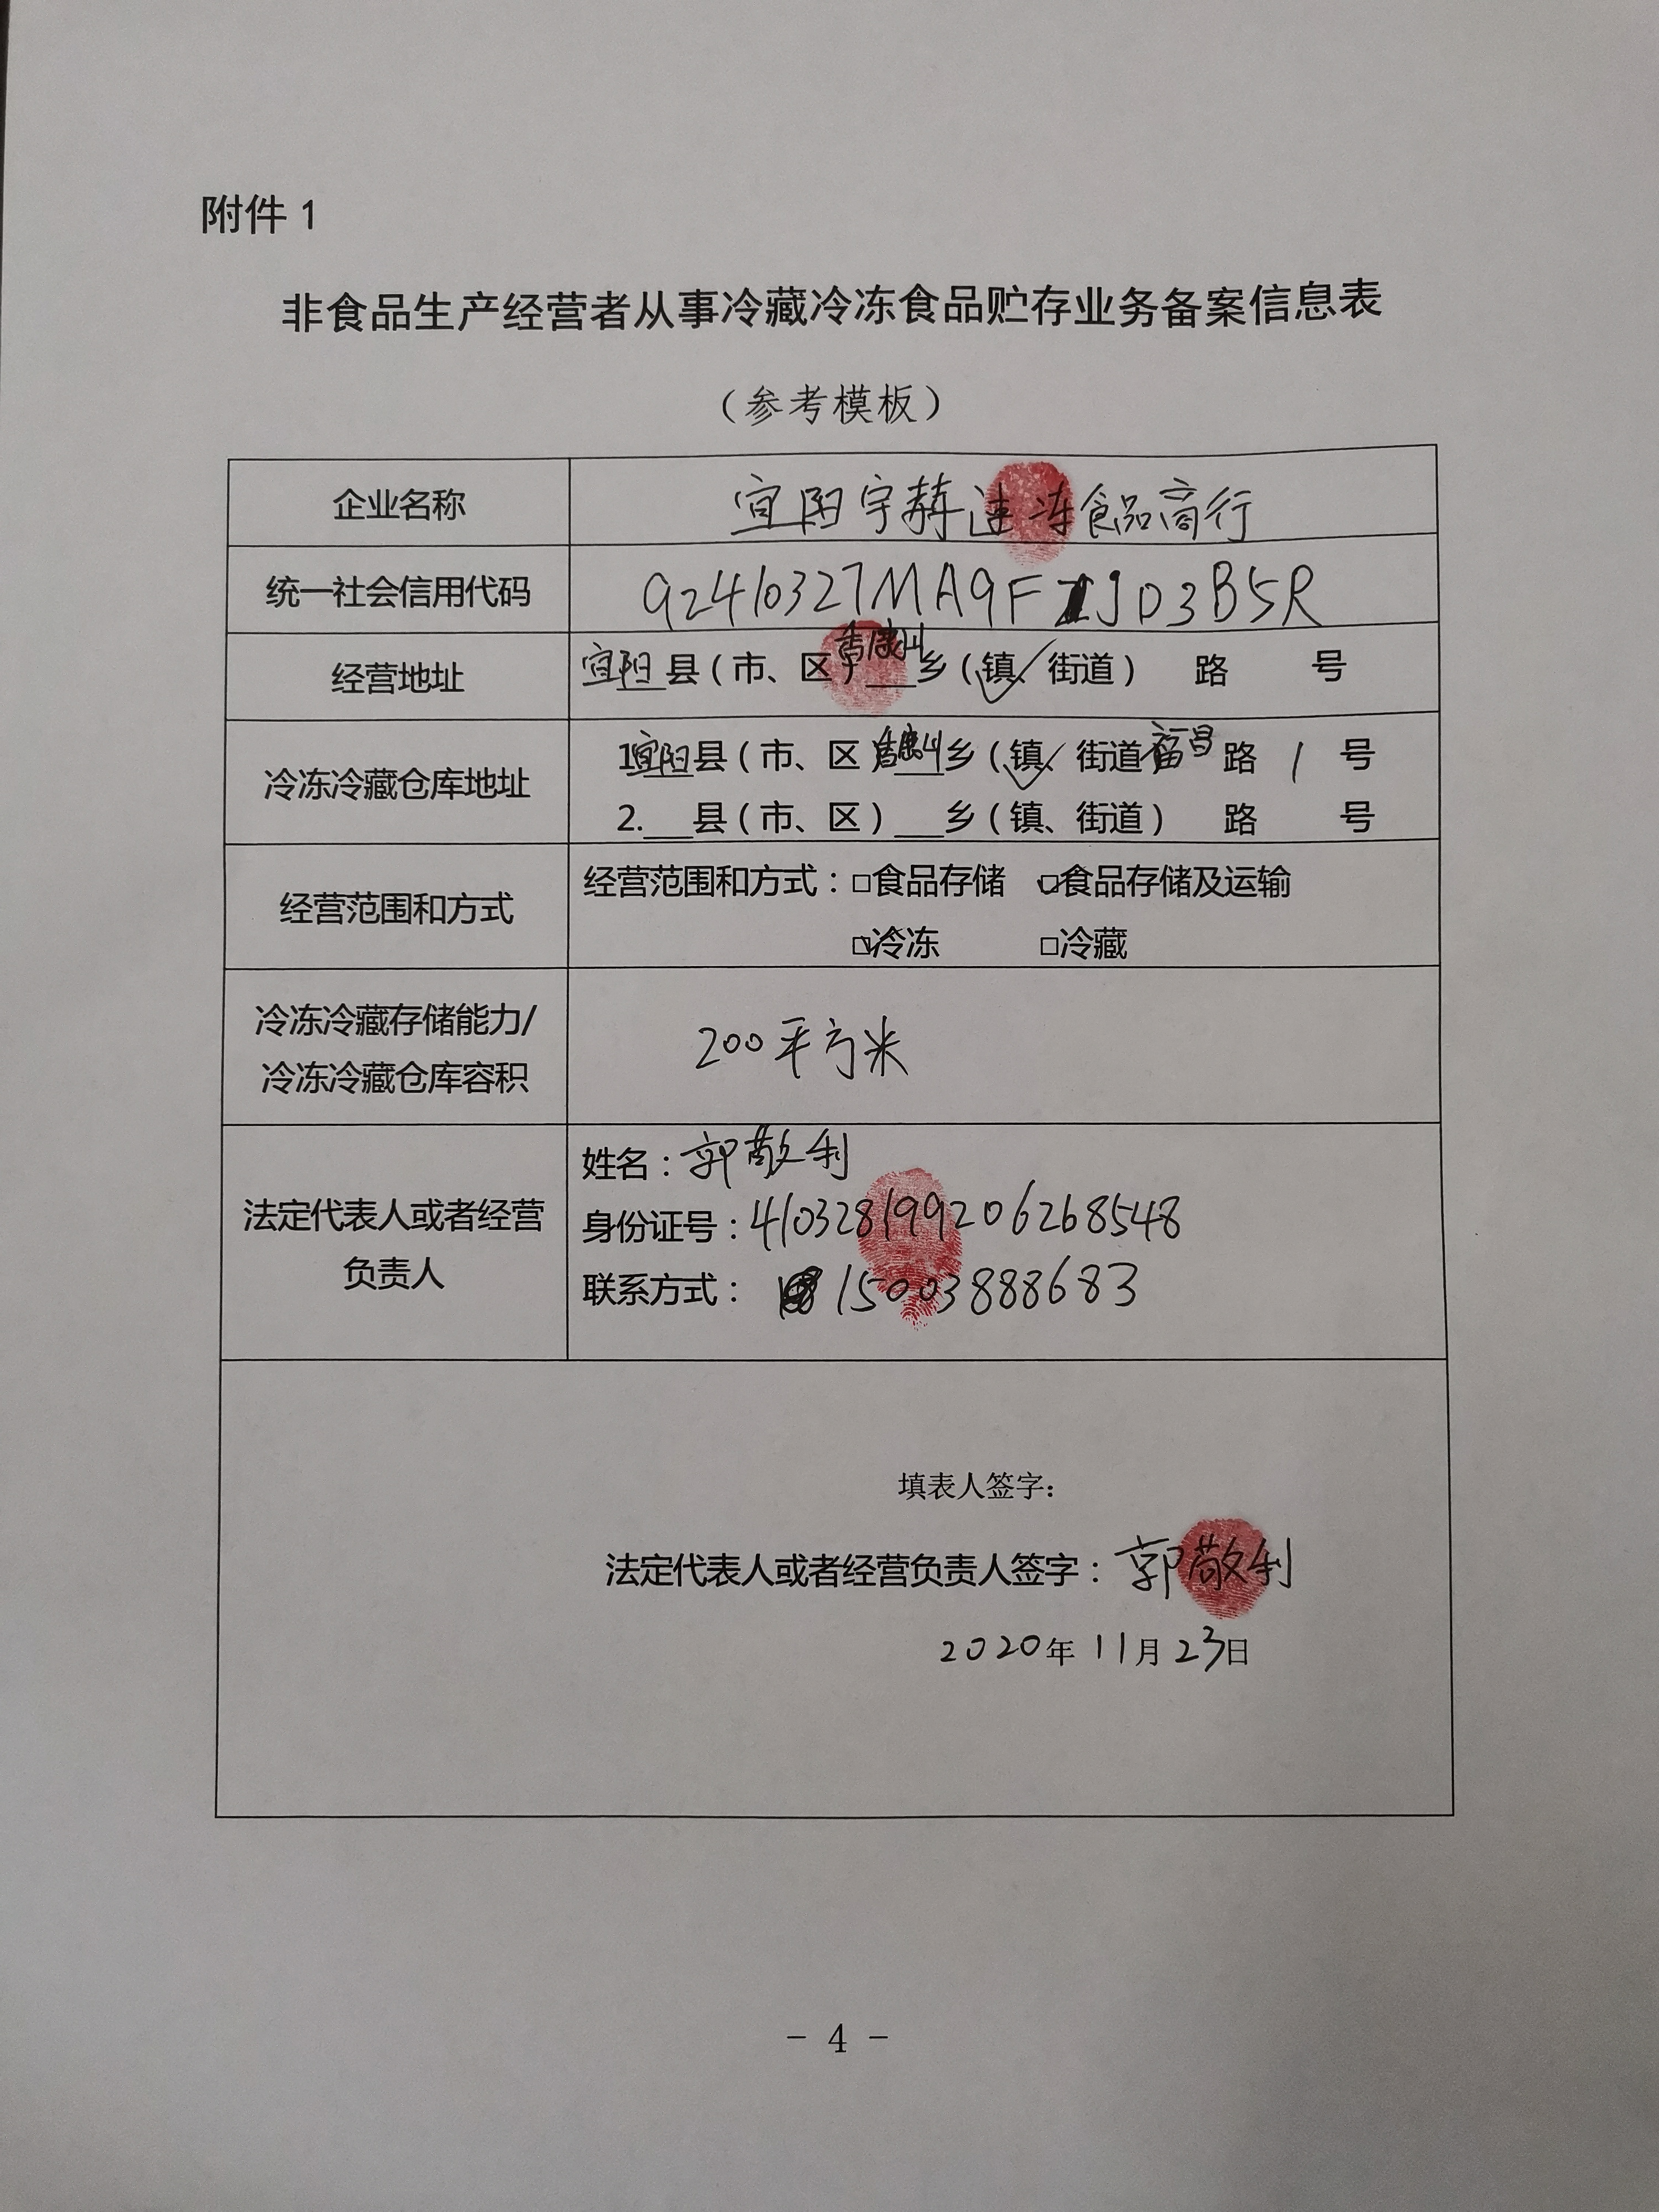 附件 1
非食品生产经营者从事冷藏冷冻食品贮存业务备案信息表
（参考模板）
企业名称
宜阳宇赫速冻食品商行
统一社会信用代码
92410327MA9FJD3B5R
经营地址
宜阳县（市、区）香鹿山乡（镇、街道） 路 号
冷冻冷藏仓库地址
1.宜阳县（市、区）香鹿山乡（镇、街道）福昌路 1 号
2.___县（市、区）___乡（镇、街道） 路 号
经营范围和方式
经营范围和方式：□食品存储 ☑食品存储及运输
☑冷冻 □冷藏
冷冻冷藏存储能力/
冷冻冷藏仓库容积
200平方米
法定代表人或者经营
负责人
姓名：郭敬利
身份证号：410328199206268548
联系方式：15003888683
填表人签字：
法定代表人或者经营负责人签字：郭敬利
2020年 11月 23日
- 4 -